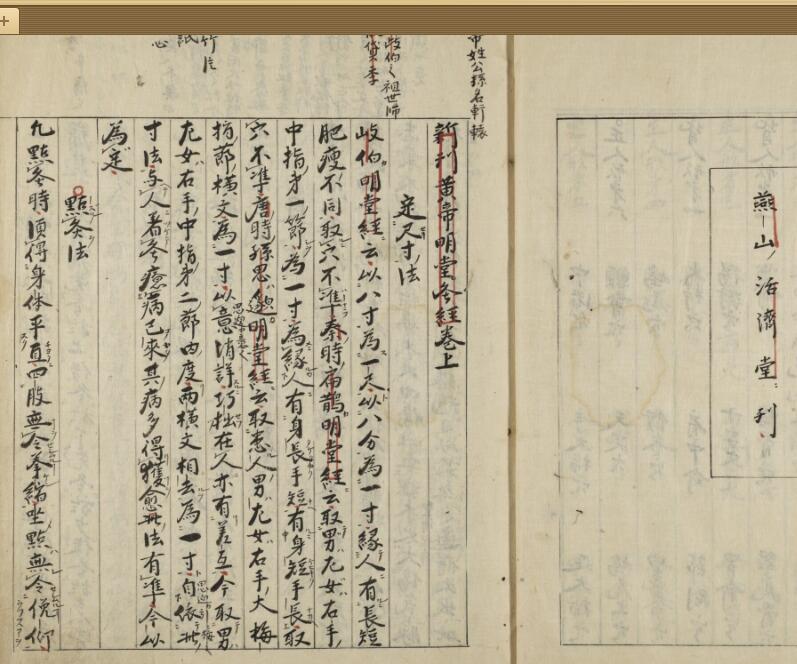 燕山活濟堂刊
帝姓公孫名軒轅
岐伯之祖世師
新刊黄帝明堂灸経巻上
定尺寸法
岐伯明堂経云以八寸為一尺以八分為一寸縁人有長短
肥瘦不同取穴不準秦時扁鵲明堂経云取男左女右手
中指第一節為一寸為縁人有身長手短有身短手長取
穴不準唐時孫思邈明堂経云取患人男左女右手大拇
指節横文為一寸以意消詳巧拙在人亦有差互今取男
左女右手中指第二節内度両横文相去為一寸自依此
寸法与人著灸療病已来其病多得獲愈此法有準今以
為定
點灸法
凡點灸時須得身体平直四肢無令拳縮坐點無令俛仰